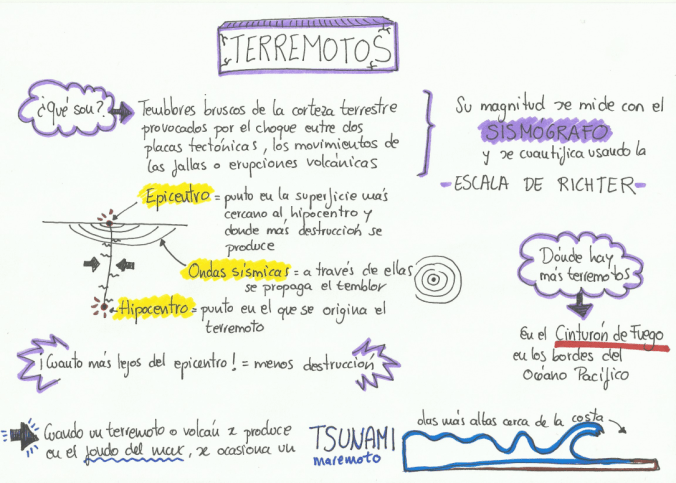 TERREMOTOS
¿Qué son?
Temblores bruscos de la corteza terrestre
provocados por el choque entre dos
placas tectónicas, los movimientos de
las fallas o erupciones volcánicas
Su magnitud se mide con el
SISMÓGRAFO
y se cuantifica usando la
-ESCALA DE RICHTER-
Epicentro = punto en la superficie más
cercano al hipocentro y
donde más destrucción se
produce
Ondas sísmicas = a través de ellas
se propaga el temblor
Hipocentro = punto en el que se origina el
terremoto
Dónde hay
más terremotos
En el Cinturón de Fuego
en los bordes del
Océano Pacífico
¡Cuanto más lejos del epicentro! = menos destrucción
Cuando un terremoto o volcán se produce
en el fondo del mar, se ocasiona un
TSUNAMI
maremoto
olas más altas cerca de la costa